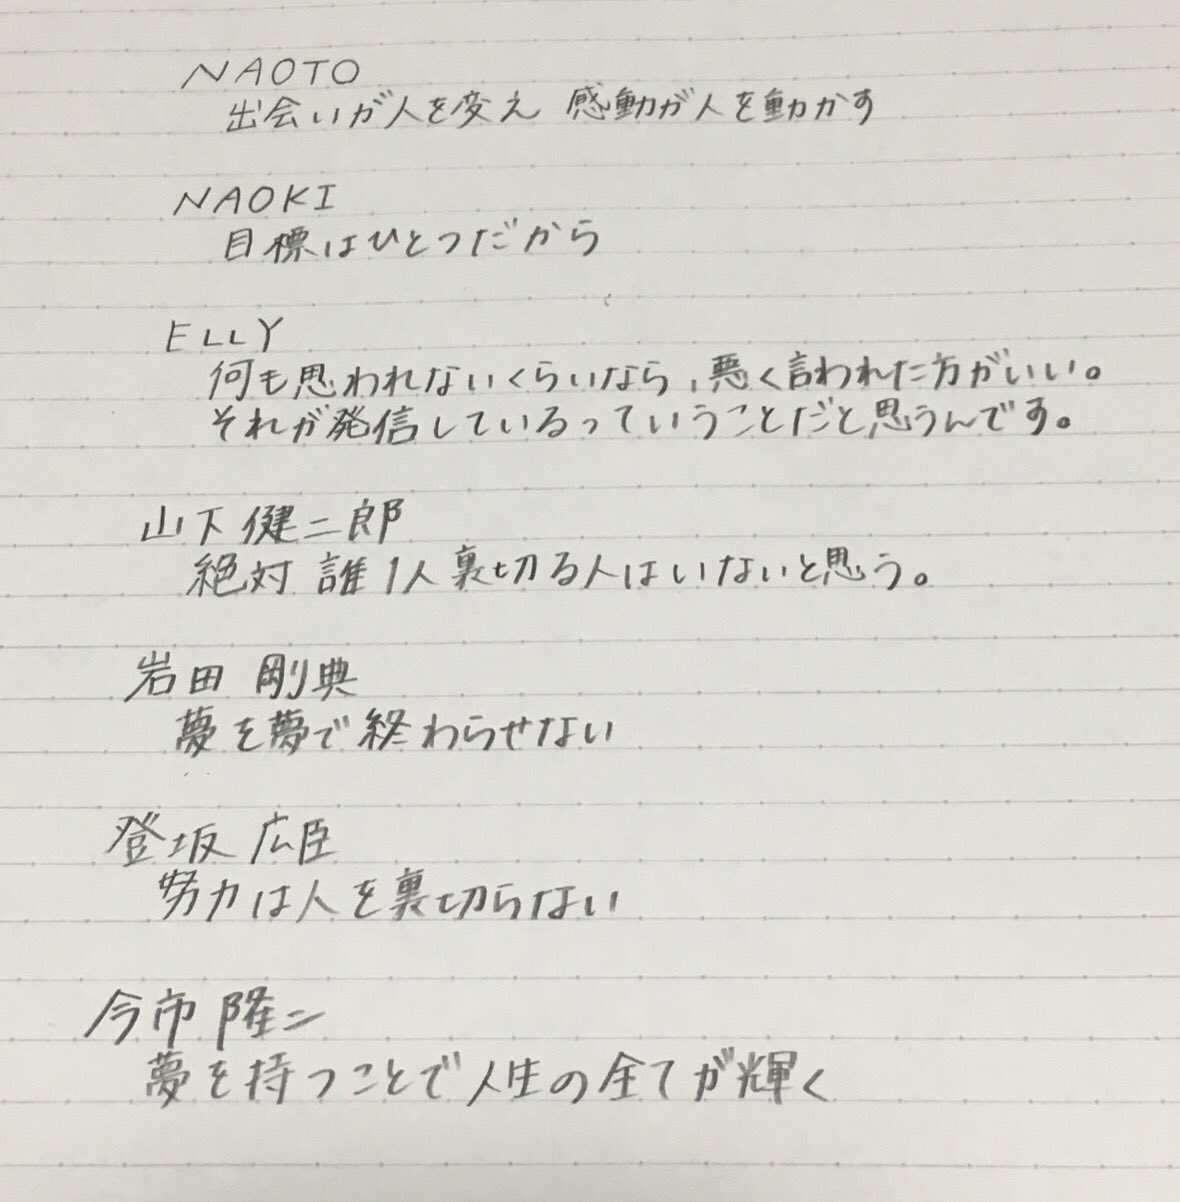 NAOTO
出会いが人を変え 感動が人を動かす
NAOKI
目標はひとつだから
ELLY
何も思われないくらいなら、悪く言われた方がいい。
それが発信しているっていうことだと思うんです。
山下健二郎
絶対 誰1人裏切る人はいないと思う。
岩田 剛典
夢を夢で終わらせない
登坂 広臣
努力は人を裏切らない
今市 隆二
夢を持つことで人生の全てが輝く